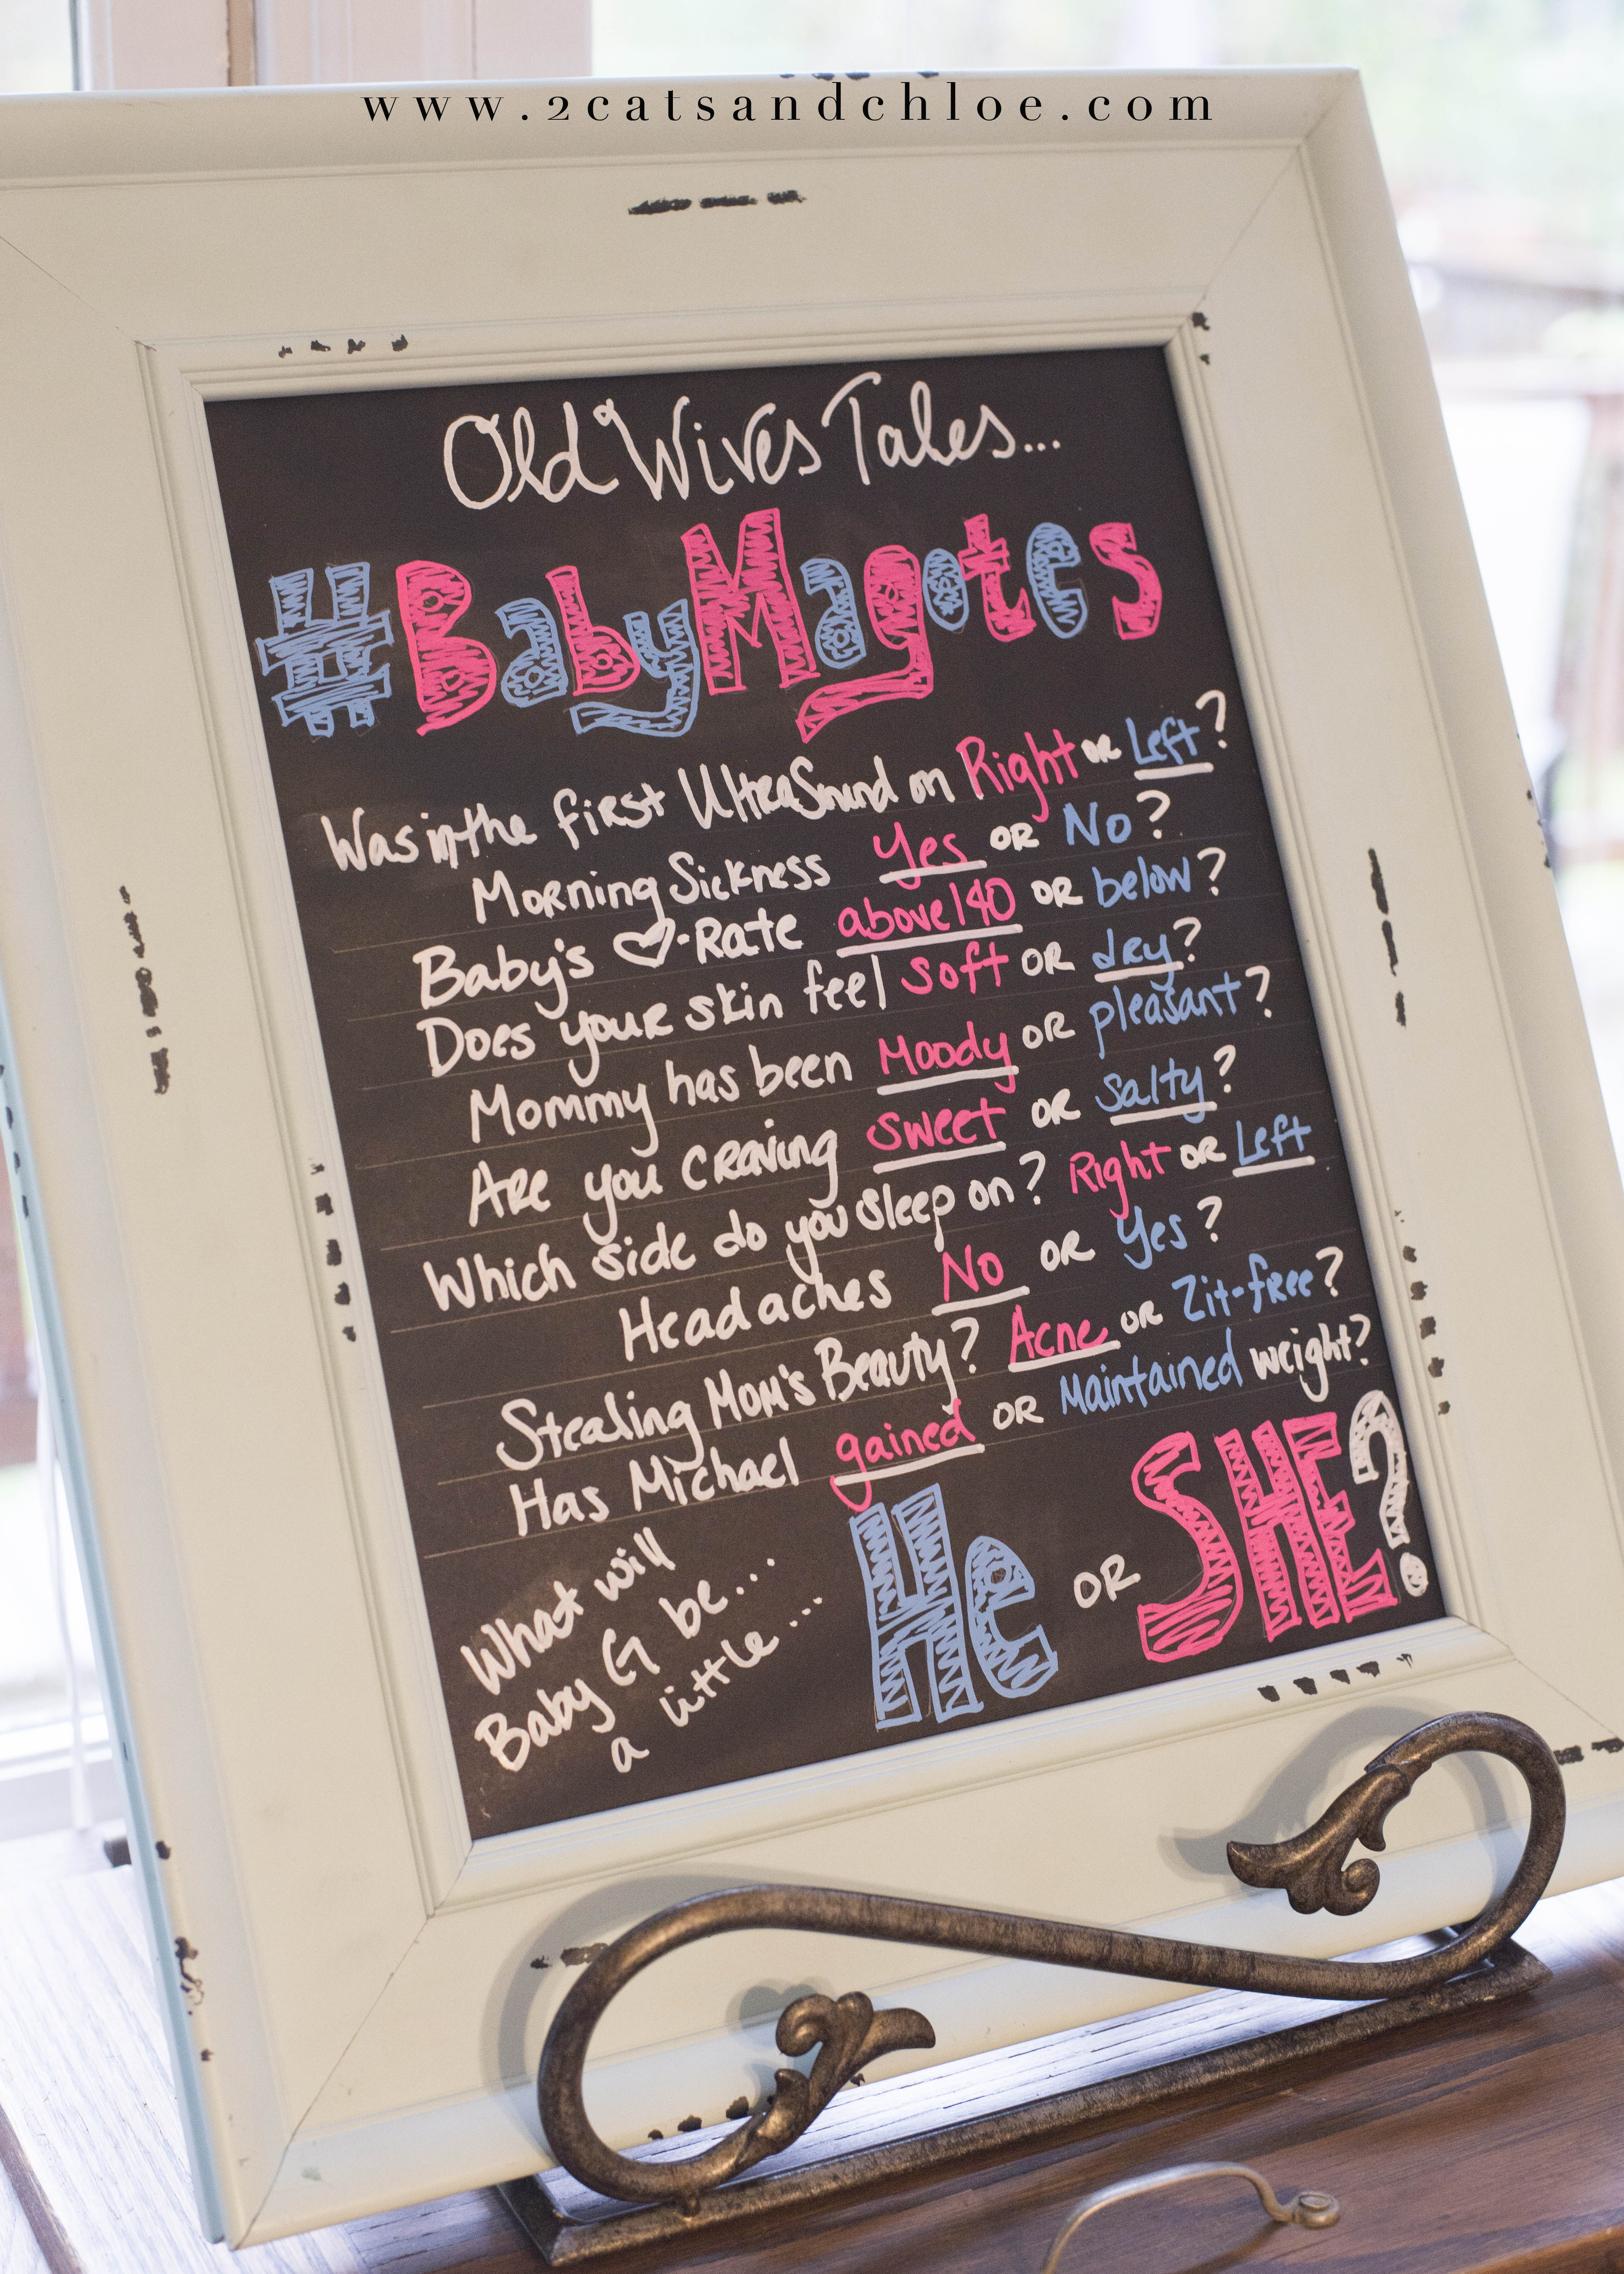 www.2catsandchloe.com
Old Wives Tales...
#BabyMagotes
Was in the first UltraSound on Right or Left?
Morning Sickness Yes or No?
Baby's ♡-Rate above 140 or below?
Does your skin feel soft or dry?
Mommy has been Moody or pleasant?
Are you craving sweet or salty?
Which side do you sleep on? Right or Left
Headaches No or Yes?
Stealing Mom's Beauty? Acne or Zit-free?
Has Michael gained or Maintained weight?
What will
Baby G be...
a little...
He or SHE?